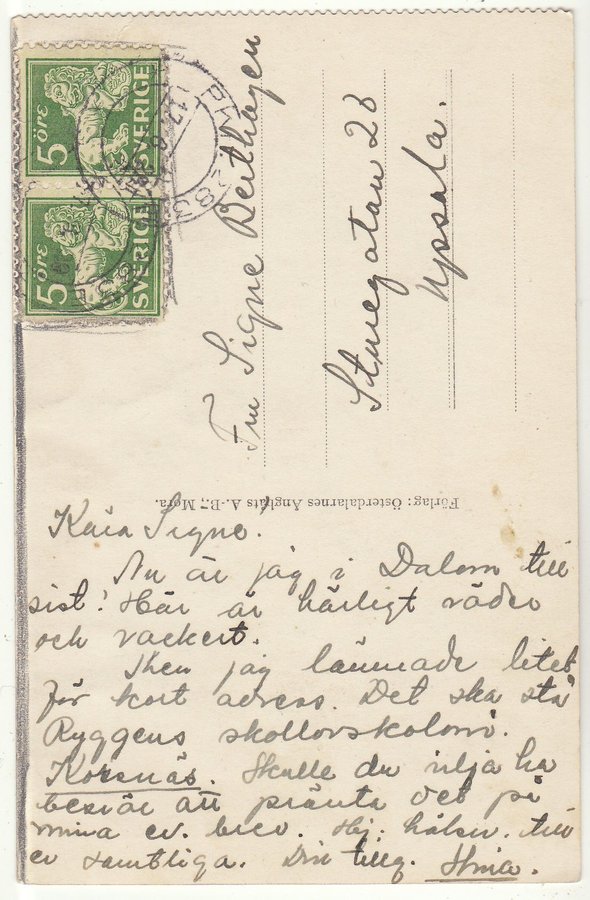 5 ÖRE SVERIGE
5 ÖRE SVERIGE
Fru Signe Berthagen
Sturegatan 28
Upsala.
Förlag: Österdalarnes Ångbåts A.-B., Mora.
Kära Signe.
Nu är jag i Dalom till
sist! Här är härligt väder
och vackert.
Men jag lämnade litet
för kort adress. Det ska stå
Ryggens skollovskoloni.
Korsnäs. Skulle du vilja ha
besvär att pränta det på
mina ev. brev. Hej. hälsn. till
er samtliga. Din tillg.